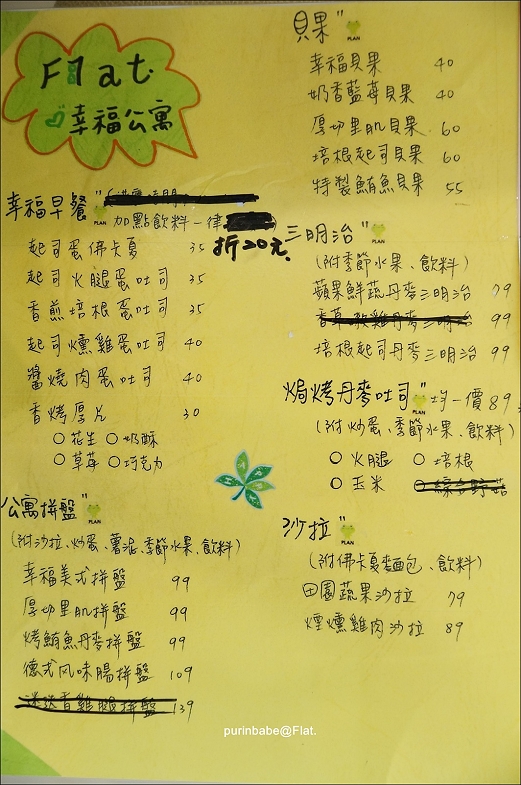 Flat.
幸福公寓
幸福早餐"
加點飲料一律
折20元.
起司蛋佛卡夏 35
起司火腿蛋吐司 35
香煎培根蛋吐司 35
起司燻雞蛋吐司 40
醬燒肉蛋吐司 40
香烤厚片 30
○花生 ○奶酥
○草莓 ○巧克力
公寓拼盤"
PLAN
(附沙拉、炒蛋、薯泥、季節水果、飲料)
幸福美式拼盤 99
厚切里肌拼盤 99
烤鮪魚丹麥拼盤 99
德式风味腸拼盤 109
迷迭香雞腿拼盤 139
貝果"
PLAN
幸福貝果 40
奶香藍莓貝果 40
厚切里肌貝果. 60
培根起司貝果 60
特製鮪魚貝果 55
三明治"
PLAN
(附季節水果、飲料)
蘋果鮮蔬丹麥三明治 79
香草 雞丹麥三明治 99
培根起司丹麥三明治 99
焗烤丹麥吐司"均一價89.
PLAN
(附炒蛋、季節水果、飲料)
○火腿 ○培根
○玉米 ○綜合野菇
沙拉"
PLAN
(附佛卡夏麵包、飲料)
田園蔬果沙拉 79
煙燻雞肉沙拉 89
purinbabe@Flat.